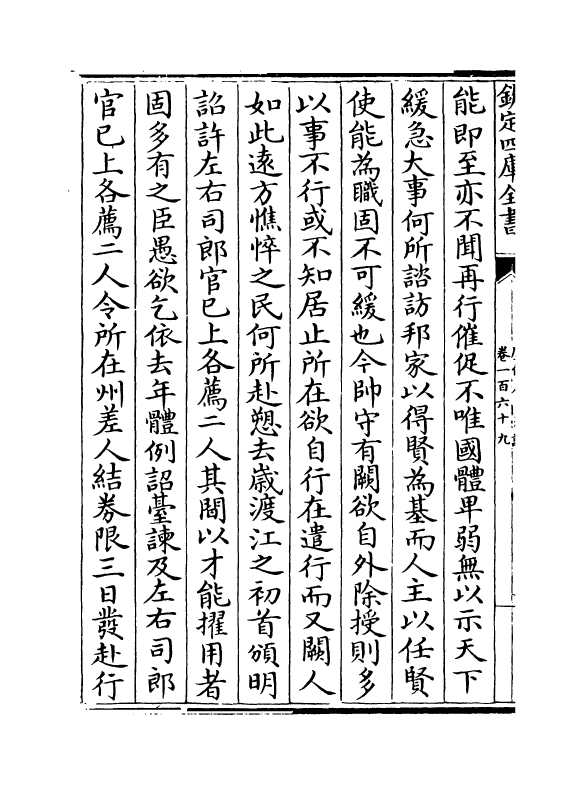 欽定四庫全書
卷一百六十九
能即至亦不聞再行催促不唯國體卑弱無以示天下
緩急大事何所諮訪邦家以得賢為基而人主以任賢
使能為職固不可緩也今帥守有闕欲自外除授則多
以事不行或不知居止所在欲自行在遣行而又闕人
如此逺方憔悴之民何所赴愬去嵗渡江之初首頒明
詔許左右司郎官已上各薦二人其間以才能擢用者
固多有之臣愚欲乞依去年體例詔臺諫及左右司郎
官已上各薦二人令所在州差人結券限三日發赴行